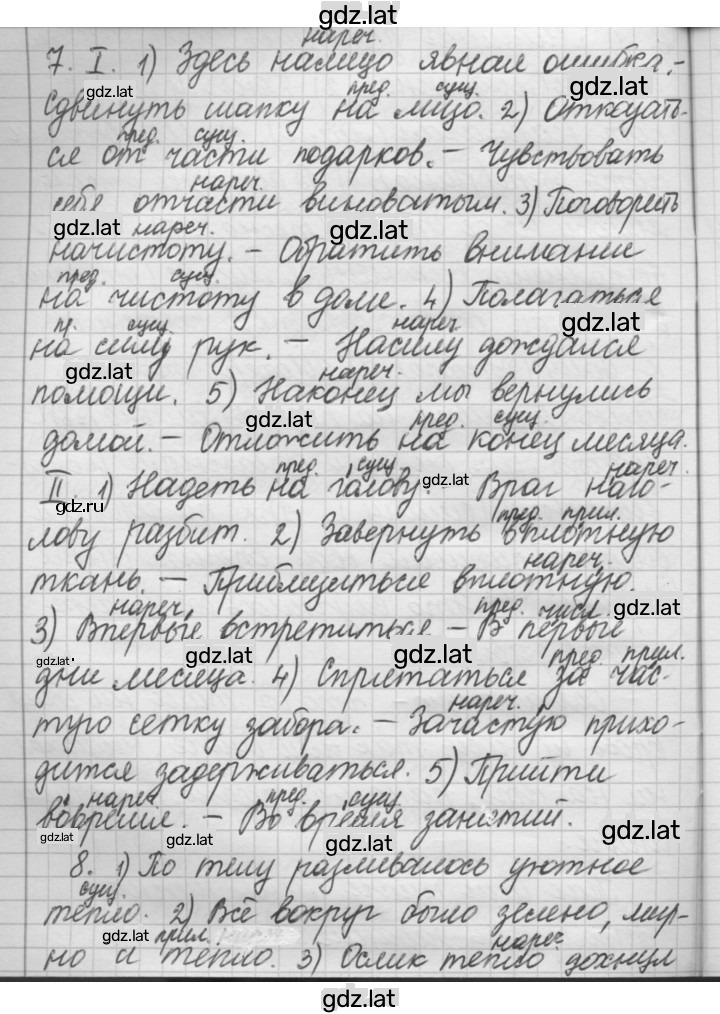 gdz.lat
нареч.
7. I. 1) Здесь налицо явная ошибка. -
gdz.lat пред. сущ. gdz.lat
Сдвинуть шапку на лицо. 2) Отказать-
пред. сущ.
ся от части подарков. - Чувствовать
нареч.
себя отчасти виноватым. 3) Поговорить
gdz.lat нареч. gdz.lat
начистоту. - Обратить внимание
пред. сущ.
на чистоту в доме. 4) Полагаться
пр. сущ. нареч. gdz.lat
на силу рук. - Насилу дождался
gdz.lat нареч.
помощи. 5) Наконец мы вернулись
gdz.lat пред. сущ.
домой. - Отложить на конец месяца.
пред. сущ. gdz.lat нареч.
II. 1) Надеть на голову. - Враг наго-
gdz.ru пред. прил.
лову разбит. 2) Завернуть в плотную
нареч.
ткань. - Приблизиться вплотную.
нареч. пред. числ. gdz.lat
3) Впервые встретиться - В первые
gdz.lat gdz.lat gdz.lat пред. прил.
дни месяца. 4) Спрятаться за час-
нареч.
тую сетку забора. - Зачастую прихо-
дится задерживаться. 5) Прийти
нареч. пред. сущ.
вовремя. - Во время занятий.
gdz.lat gdz.lat gdz.lat
8. 1) По телу разливалось уютное
сущ.
тепло. 2) Всё вокруг было зелено, мир-
gdz.lat прил. нареч.
но и тепло. 3) Ослик тепло дохнул
gdz.lat